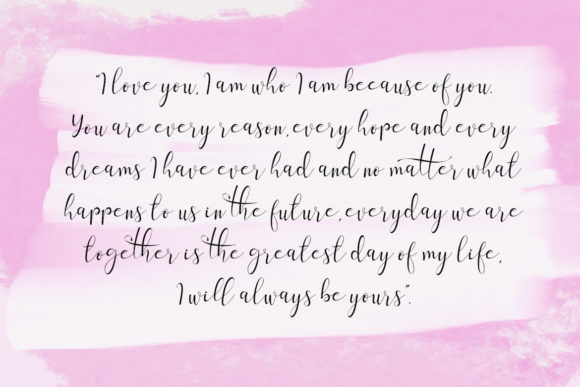 "I love you, I am who I am because of you.
You are every reason, every hope and every
dreams I have ever had and no matter what
happens to us in the future, everyday we are
together is the greatest day of my life,
I will always be yours".